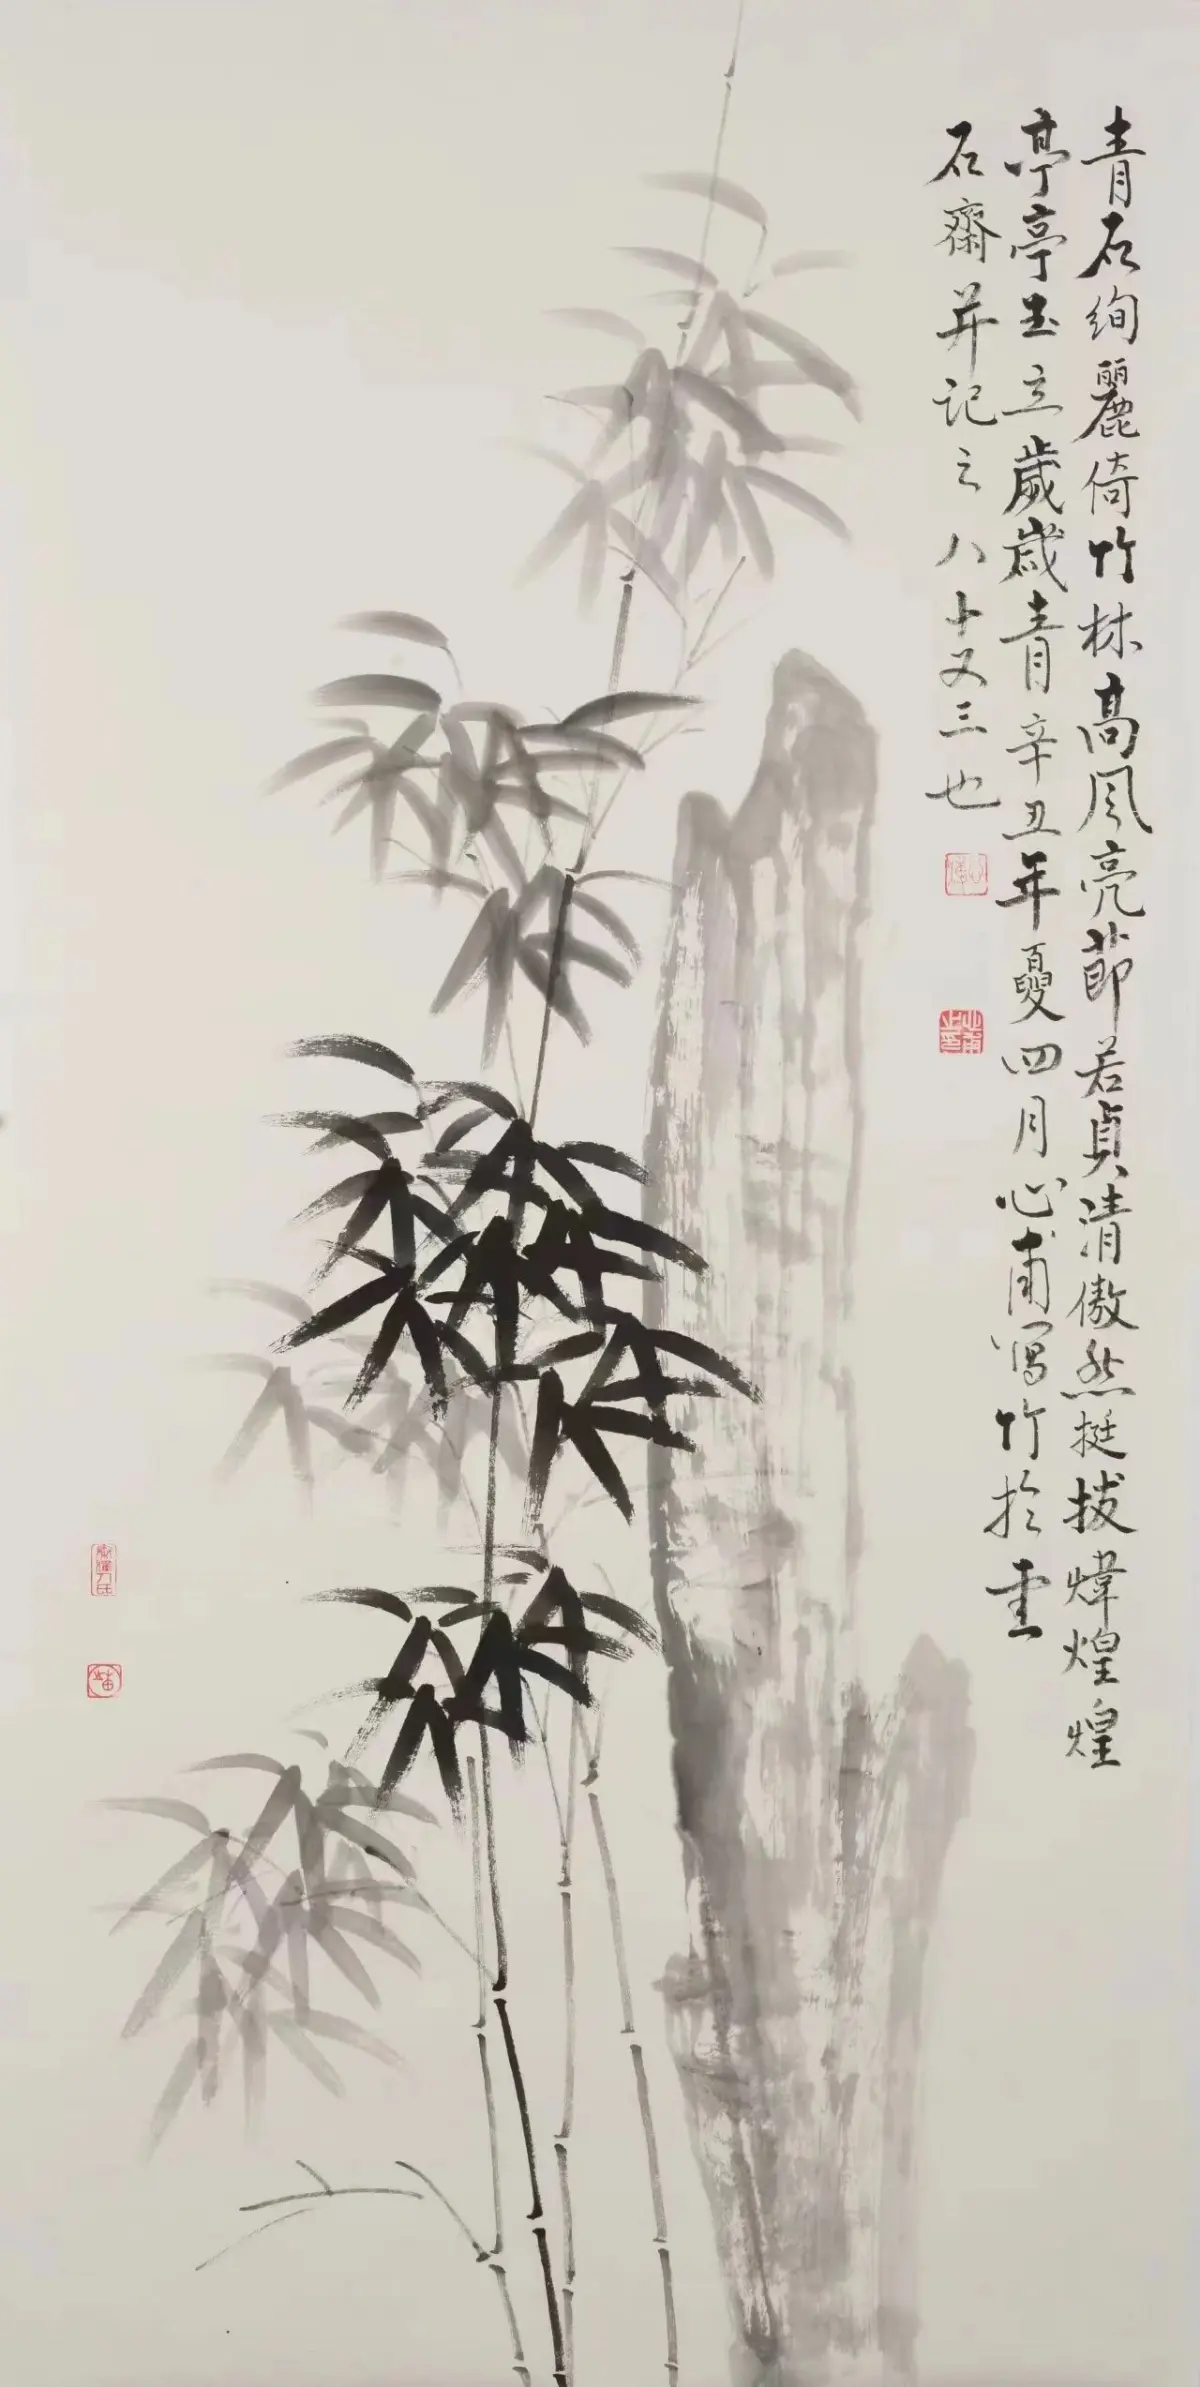 青石絢麗倚竹林高风亮節若貞清傲然挺拔煒煌煌
亭亭玉立歲歲青辛丑年夏四月心甫写竹於雲
石齋并记之八十又三也